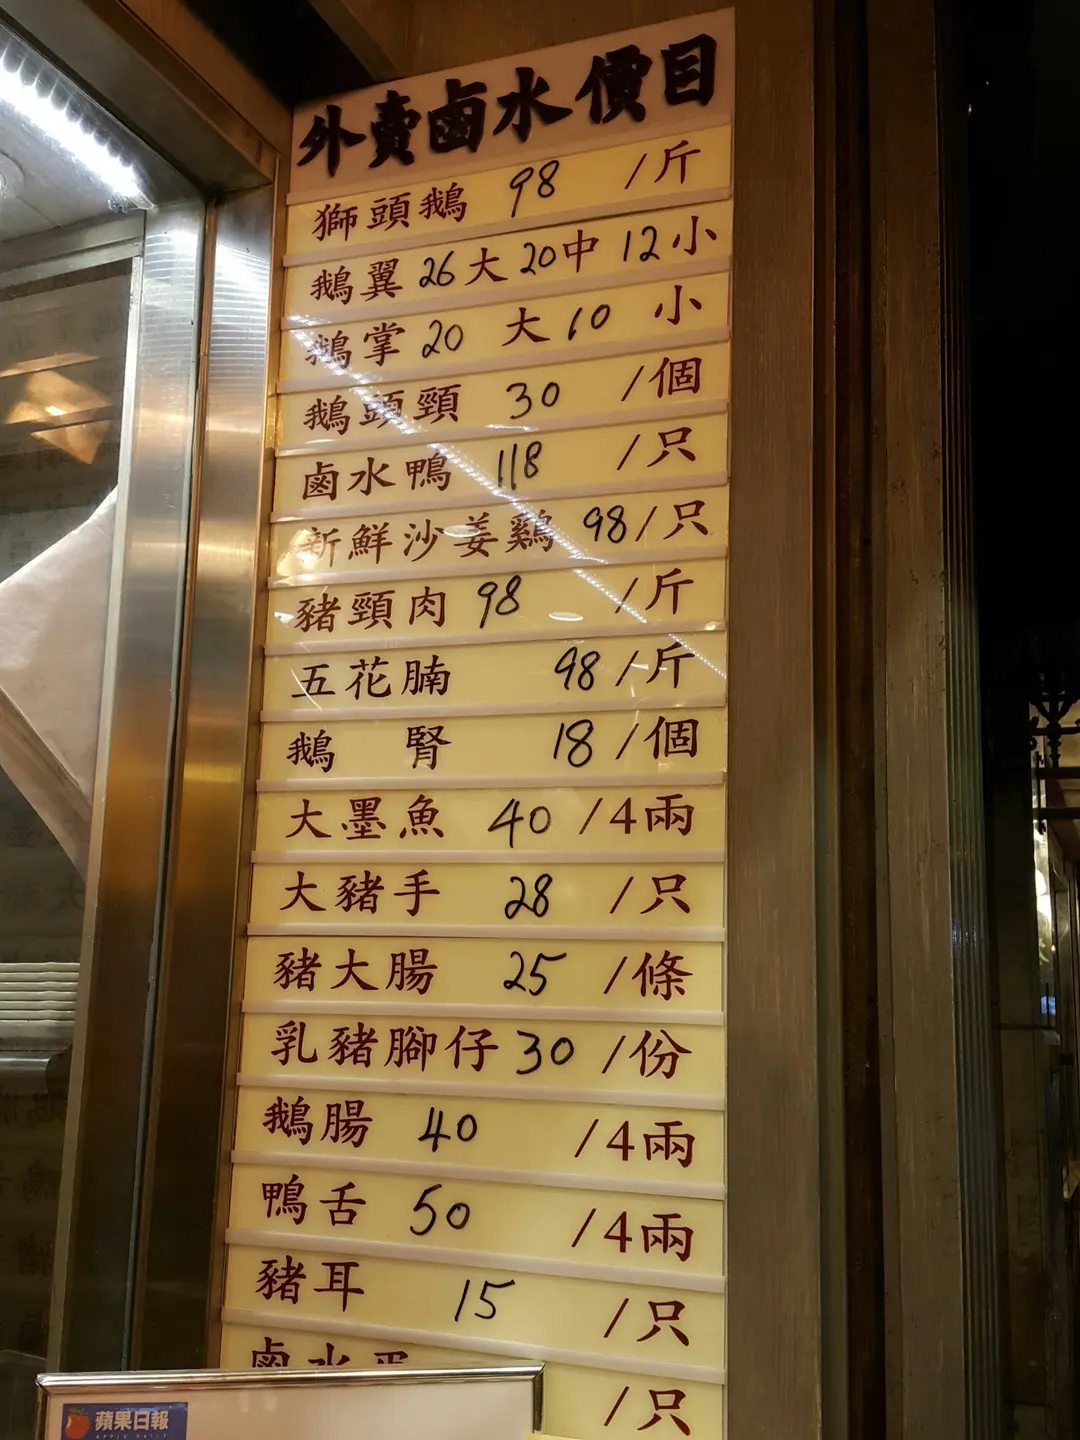 外賣鹵水價目
獅頭鵝 98 /斤
鵝翼 26大 20中 12小
鵝掌 20 大 10 小
鵝頭頸 30 /個
鹵水鴨 118 /只
新鮮沙姜鷄 98/只
豬頸肉 98 /斤
五花腩 98/斤
鵝 腎 18/個
大墨魚 40 /4兩
大豬手 28 /只
豬大腸 25 /條
乳豬腳仔 30 /份
鵝腸 40 /4兩
鴨舌 50 /4兩
豬耳 15 /只
鹵水 /只
蘋果日報
APPLE DAILY